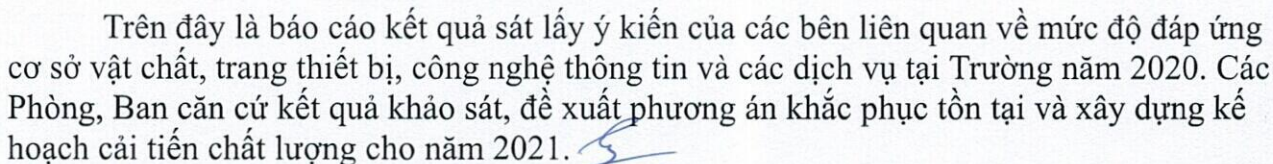 Trên đây là báo cáo kết quả sát lấy ý kiến của các bên liên quan về mức độ đáp ứng
cơ sở vật chất, trang thiết bị, công nghệ thông tin và các dịch vụ tại Trường năm 2020. Các
Phòng, Ban căn cứ kết quả khảo sát, đề xuất phương án khắc phục tồn tại và xây dựng kế
hoạch cải tiến chất lượng cho năm 2021.